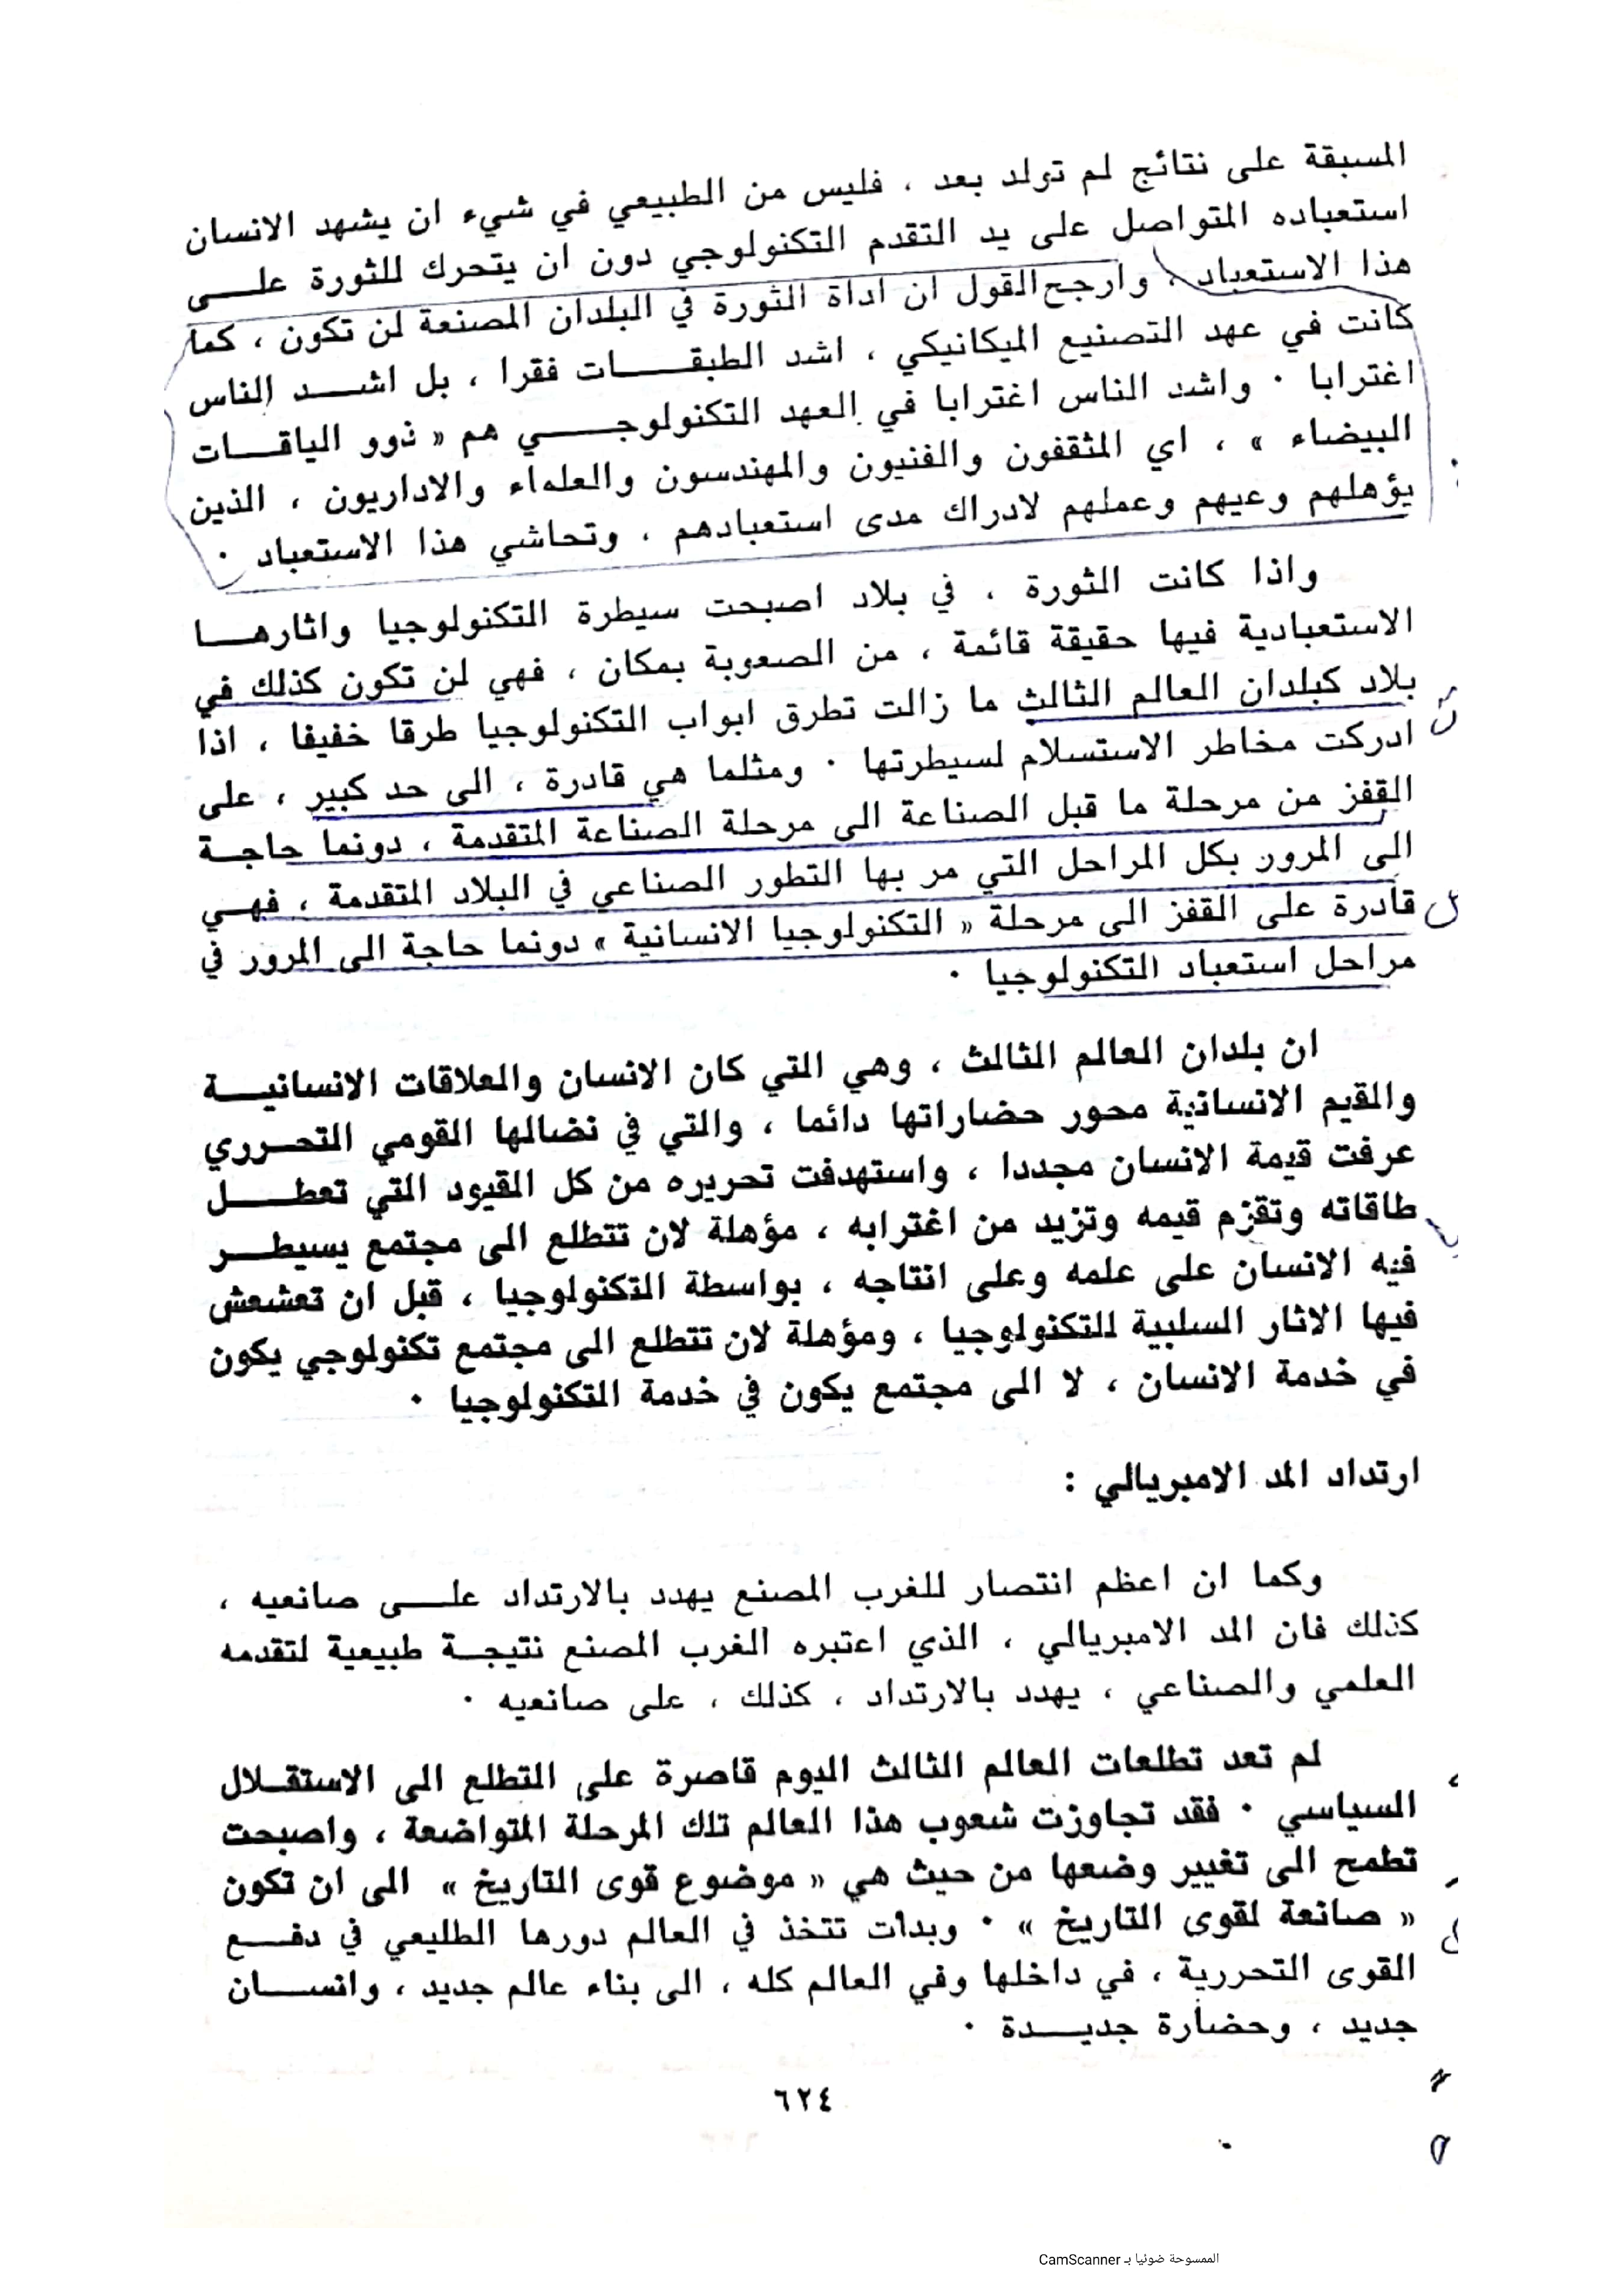 المسبقة على نتائج لم تولد بعد ، فليس من الطبيعي في شيء ان يشهد الانسان
استعباده المتواصل على يد التقدم التكنولوجي دون ان يتحرك للثورة على
هذا الاستعباد ، وارجح القول ان اداة الثورة في البلدان المصنعة لن تكون ، كما
كانت في عهد التصنيع الميكانيكي ، اشد الطبقات فقرا ، بل اشد الناس
اغترابا ٠ واشد الناس اغترابا في العهد التكنولوجي هم « ذوو الياقات
البيضاء » ، اي المثقفون والفنيون والمهندسون والعلماء والاداريون ، الذين
يؤهلهم وعيهم وعملهم لادراك مدى استعبادهم ، وتحاشي هذا الاستعباد ٠
واذا كانت الثورة ، في بلاد اصبحت سيطرة التكنولوجيا واثارها
الاستعبادية فيها حقيقة قائمة ، من الصعوبة بمكان ، فهي لن تكون كذلك في
بلاد كبلدان العالم الثالث ما زالت تطرق ابواب التكنولوجيا طرقا خفيفا ، اذا
ادركت مخاطر الاستسلام لسيطرتها ٠ ومثلما هي قادرة ، الى حد كبير ، على
القفز من مرحلة ما قبل الصناعة الى مرحلة الصناعة المتقدمة ، دونما حاجة
الى المرور بكل المراحل التي مر بها التطور الصناعي في البلاد المتقدمة ، فهي
قادرة على القفز الى مرحلة « التكنولوجيا الانسانية » دونما حاجة الى المرور في
مراحل استعباد التكنولوجيا ٠
ان بلدان العالم الثالث ، وهي التي كان الانسان والعلاقات الانسانية
والقيم الانسانية محور حضاراتها دائما ، والتي في نضالها القومي التحرري
عرفت قيمة الانسان مجددا ، واستهدفت تحريره من كل القيود التي تعطل
طاقاته وتقزم قيمه وتزيد من اغترابه ، مؤهلة لان تتطلع الى مجتمع يسيطر
فيه الانسان على علمه وعلى انتاجه ، بواسطة التكنولوجيا ، قبل ان تعشعش
فيها الاثار السلبية للتكنولوجيا ، ومؤهلة لان تتطلع الى مجتمع تكنولوجي يكون
في خدمة الانسان ، لا الى مجتمع يكون في خدمة التكنولوجيا ٠
ارتداد المد الامبريالي :
وكما ان اعظم انتصار للغرب المصنع يهدد بالارتداد على صانعيه ،
كذلك فان المد الامبريالي ، الذي اعتبره الغرب المصنع نتيجة طبيعية لتقدمه
العلمي والصناعي ، يهدد بالارتداد ، كذلك ، على صانعيه ٠
لم تعد تطلعات العالم الثالث اليوم قاصرة على التطلع الى الاستقلال
السياسي ٠ فقد تجاوزت شعوب هذا العالم تلك المرحلة المتواضعة ، واصبحت
تطمح الى تغيير وضعها من حيث هي « موضوع قوى التاريخ » الى ان تكون
« صانعة لقوى التاريخ » ٠ وبدات تتخذ في العالم دورها الطليعي في دفع
القوى التحررية ، في داخلها وفي العالم كله ، الى بناء عالم جديد ، وانسان
جديد ، وحضارة جديدة ٠
٦٢٤
الممسوحة ضوئيا بـ CamScanner